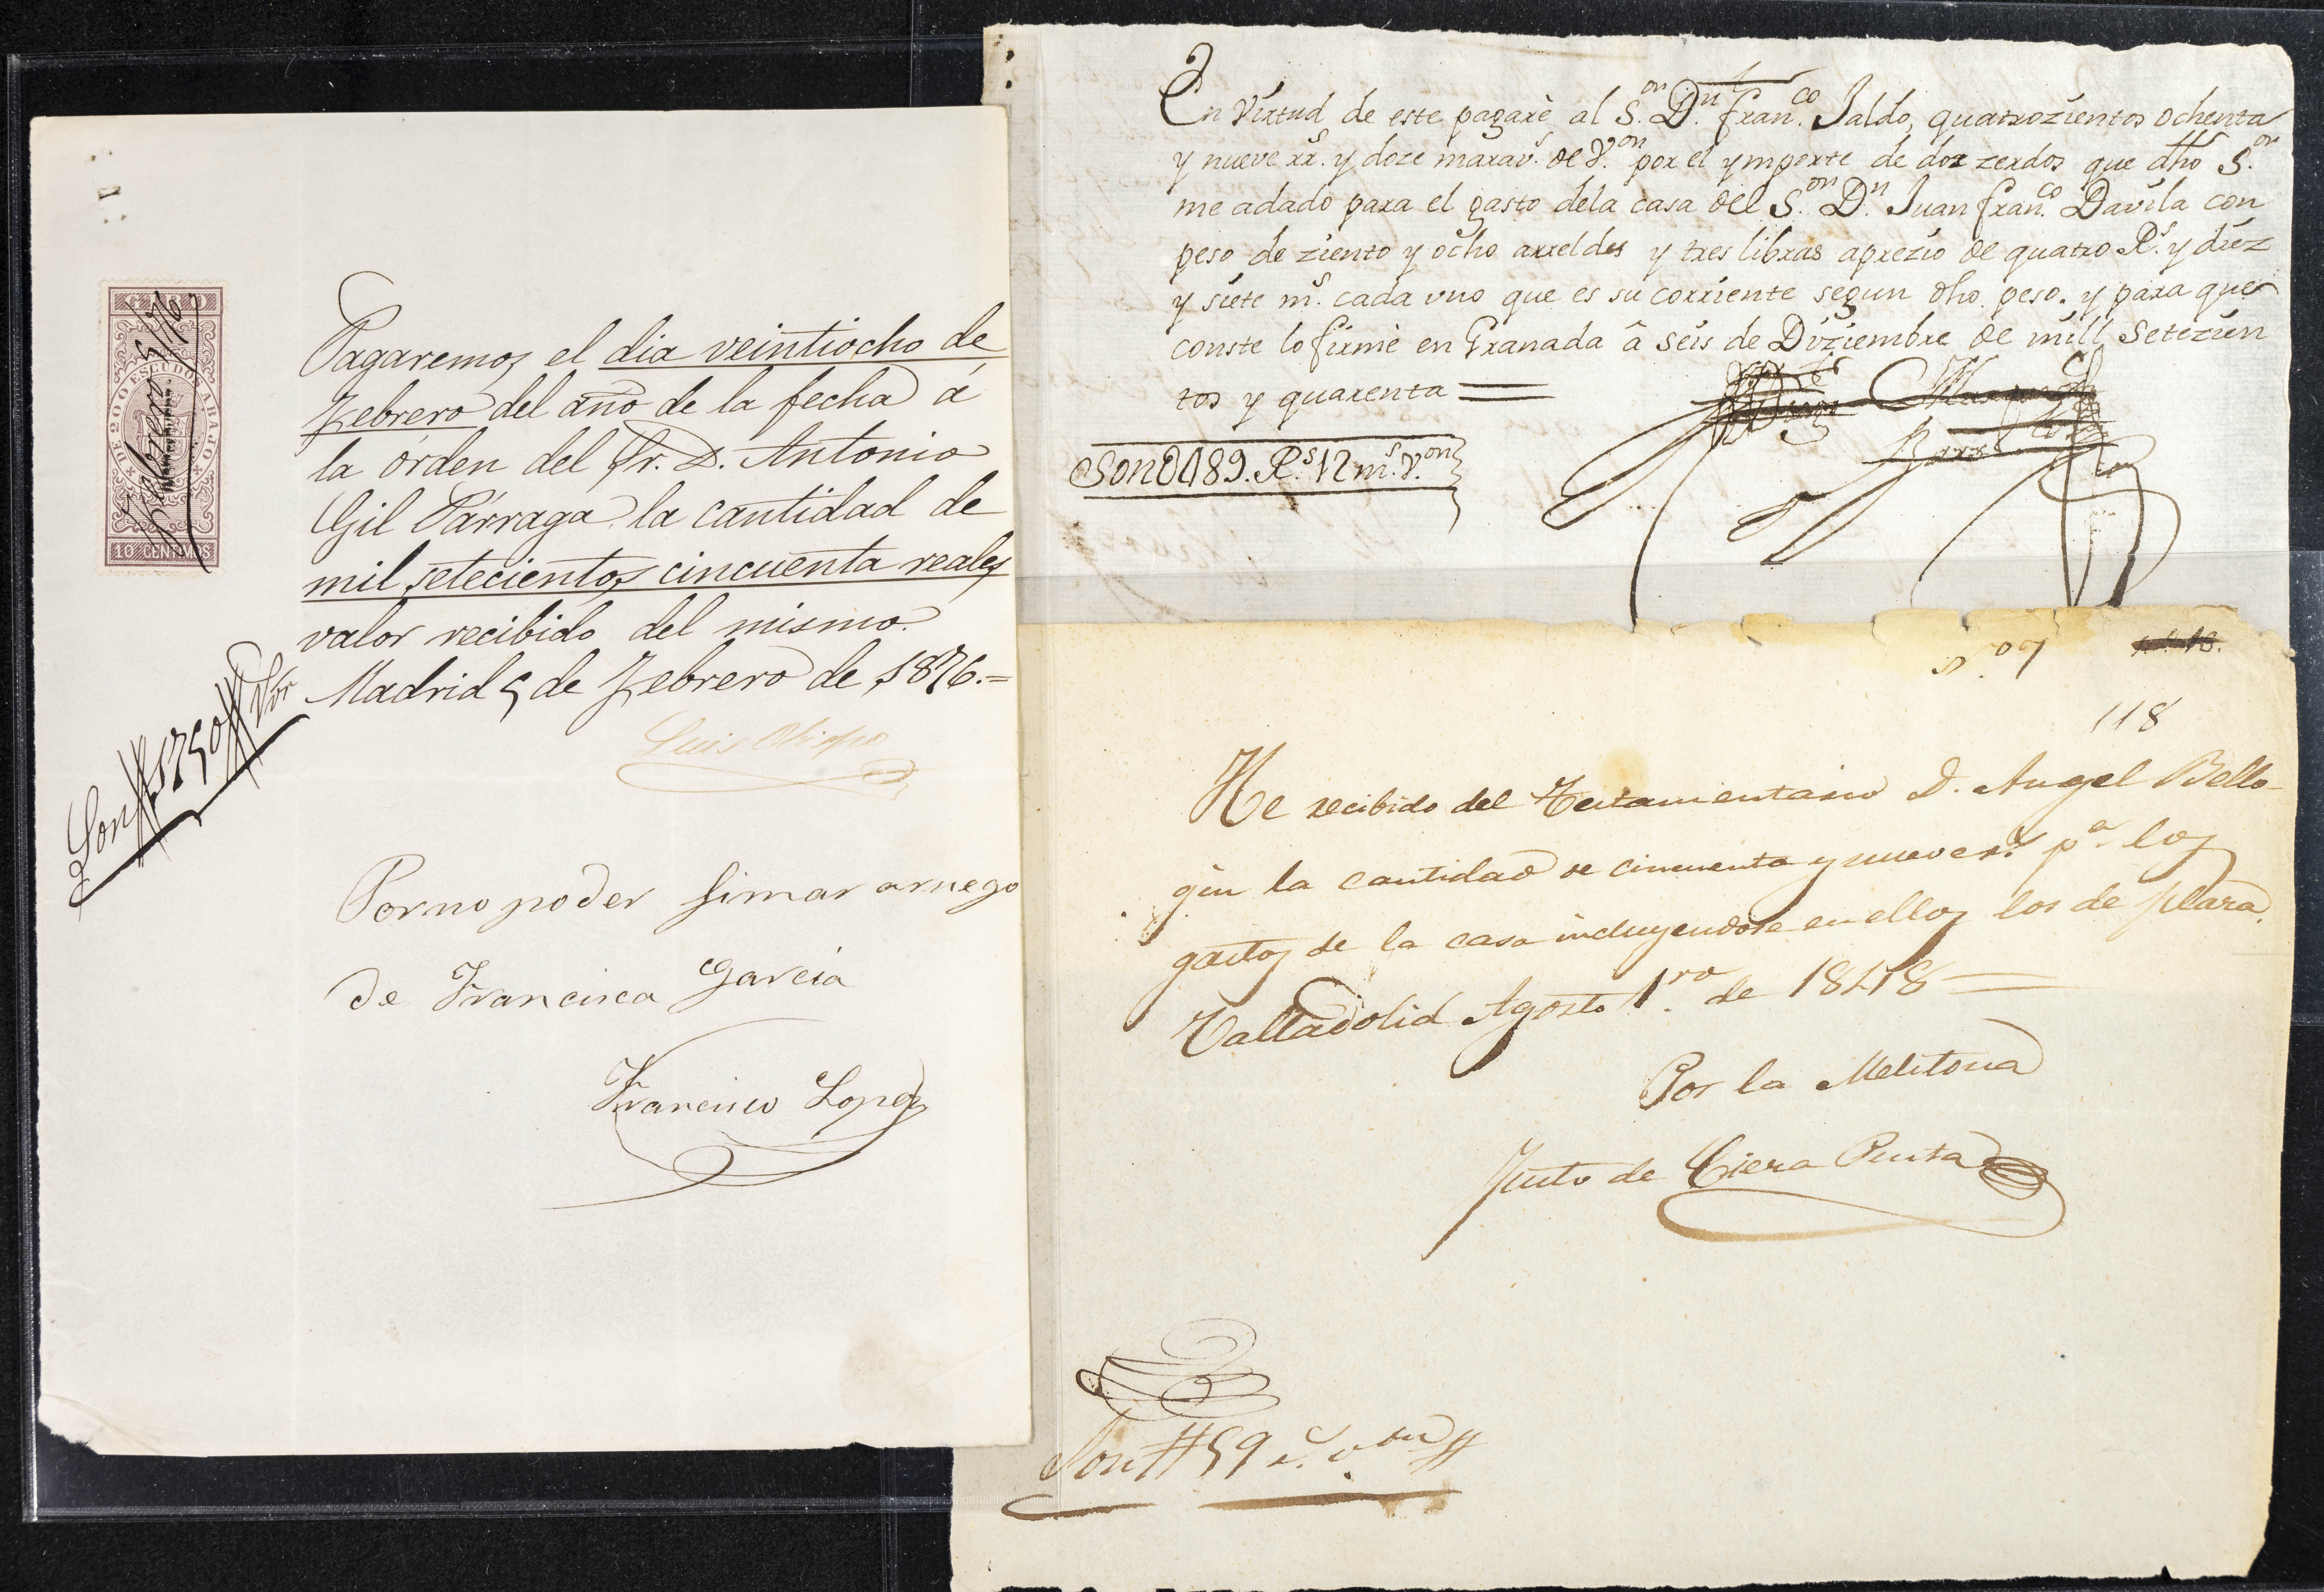 GIRO
DE 200 ESCUDOS ABAJO
10 CENTIMOS
Febrero 5/76
Pagaremos el dia veintiocho de
Febrero del año de la fecha á
la órden del Sr. D. Antonio
Gil Párraga la cantidad de
mil setecientos cincuenta reales
valor recibido del mismo.
Madrid 5 de Febrero de 1876.=
Son 1750 Von
Luis Obispo
Por no poder firmar arruego
de Francisca Garcia
Francisco Lopez
En Virtud de este pagarè al S.on D.n fran.co Jaldo, quatrozientos ochenta
y nueve rr.s y doze marav.s de V.on por el ymporte de dos zerdos que dho S.on
me adado para el gasto dela casa del S.on D.n Juan fran.co Davila con
peso de ziento y ocho arreldes y tres libras aprezio de quatro R.s y diez
y siete m.s cada uno que es su corriente segun dho peso. y para que
conste lo firmè en Granada â seis de Diziembre de mill Setezien
tos y quarenta =
Son 0489. R.s 12 m.s V.on
118
He recibido del Testamentario D. Angel Bello-
gin la cantidad de cincuenta y nueve r.s p.a los
gastos de la casa incluyendose en ellos los de plaza.
Valladolid Agosto 1.ro de 1848 =
Por la Melitona
Justo de Ciera Punta
Son # 59 r.s v.on #